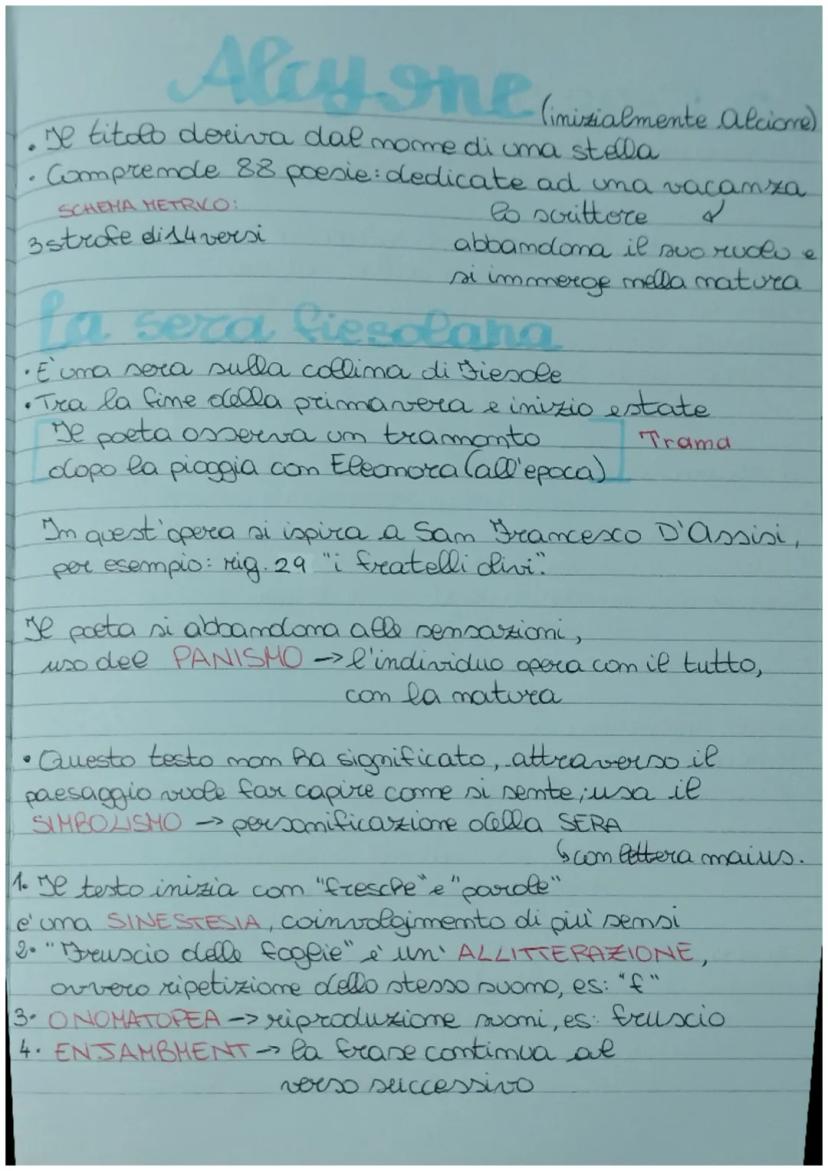 Alcyone
(inizialmente Alcione)
• Il titolo deriva dal nome di una stella
• Comprende 88 poesie: dedicate ad una vacanza
SCHEMA METRICO:
3 strofe di 14 versi
lo scrittore ↲
abbandona il suo ruolo e
si immerge nella natura
La sera fiesolana
• E' una sera sulla collina di Fiesole
• Tra la fine della primavera e inizio estate
[Il poeta osserva un tramonto
dopo la pioggia con Eleonora (all'epoca)] Trama
In quest'opera si ispira a San Francesco D'Assisi,
per esempio: rig. 29 "i fratelli olivi".
Il poeta si abbandona alle sensazioni,
uso del PANISMO → l'individuo opera con il tutto,
con la natura
• Questo testo non ha significato, attraverso il
paesaggio vuole far capire come si sente; usa il
SIMBOLISMO → personificazione della SERA
↳ con lettera maius.
1. Il testo inizia con "fresche" e "parole"
e' una SINESTESIA, coinvolgimento di piu' sensi
2. "Fruscio delle foglie" e' un' ALLITTERAZIONE,
ovvero ripetizione dello stesso suono, es: "f"
3. ONOMATOPEA → riproduzione suoni, es: fruscio
4. ENJAMBMENT → la frase continua al
verso successivo